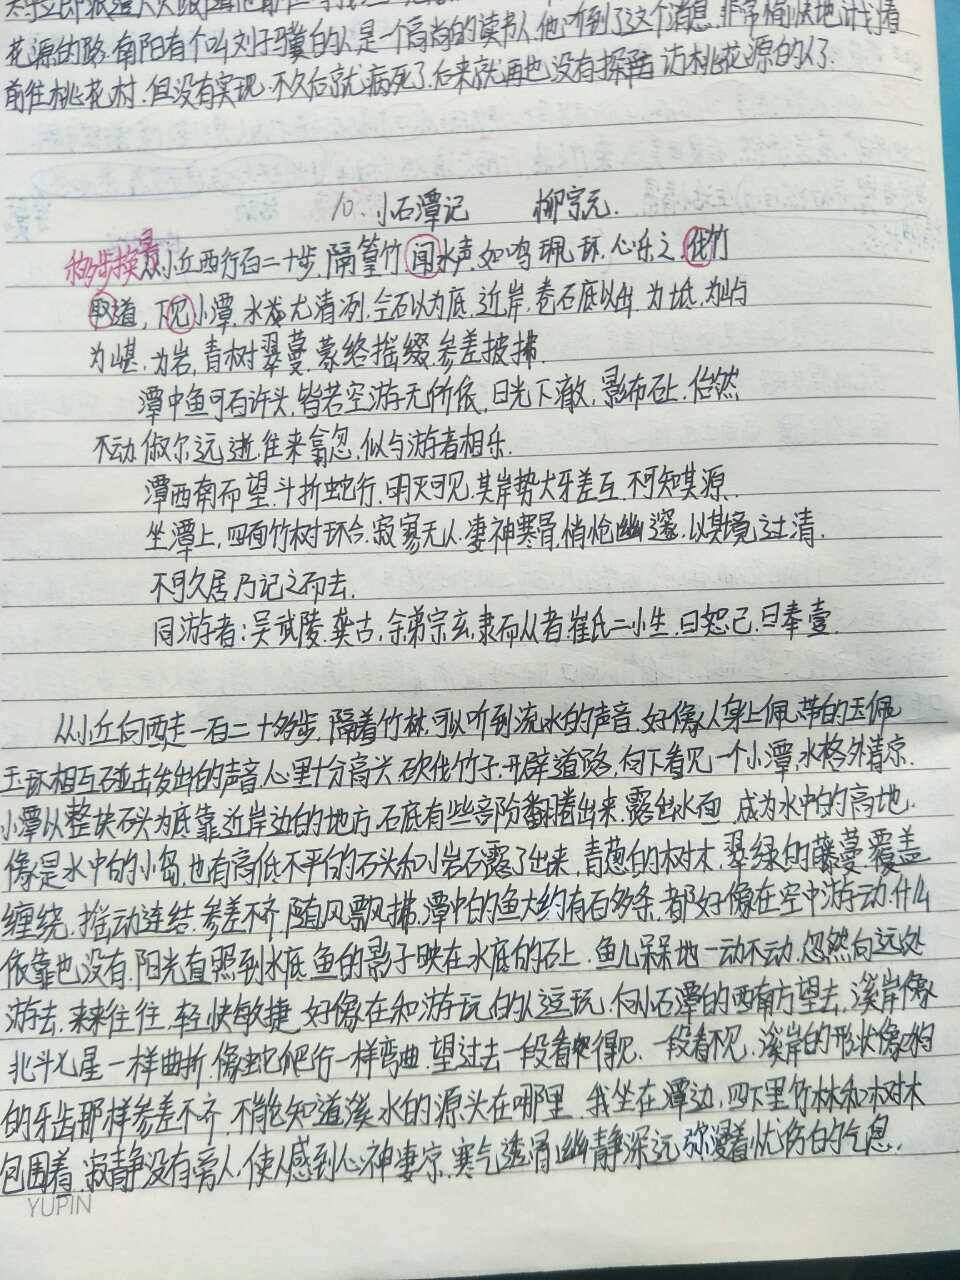 花源的路.南阳有个叫刘子骥的人是一个高尚的读书人,他听到了这个消息.非常愉快地计划着
前往桃花村.但没有实现.不久后就病死了.后来就再也没有探访桃花源的人了.
10、小石潭记 柳宗元.
移步换景
从小丘西行百二十步,隔篁竹,闻水声,如鸣珮环,心乐之.伐竹
取道,下见小潭,水尤清冽.全石以为底,近岸,卷石底以出,为坻,为屿
为嵁,为岩,青树翠蔓,蒙络摇缀,参差披拂.
潭中鱼可百许头,皆若空游无所依,日光下澈,影布石上.佁然
不动.俶尔远逝.往来翕忽.似与游者相乐.
潭西南而望.斗折蛇行.明灭可见.其岸势犬牙差互.不可知其源.
坐潭上,四面竹树环合.寂寥无人.凄神寒骨.悄怆幽邃.以其境过清.
不可久居.乃记之而去.
同游者:吴武陵.龚古,余弟宗玄.隶而从者,崔氏二小生,曰恕己.曰奉壹.
从小丘向西走一百二十多步.隔着竹林.可以听到流水的声音.好像人身上佩带的玉佩
玉环相互碰击发出的声音.心里十分高兴.砍伐竹子.开辟道路,向下看见一个小潭,水格外清凉.
小潭以整块石头为底靠近岸边的地方.石底有些部份翻腾出来.露出水面,成为水中的高地.
像是水中的小岛,也有高低不平的石头和小岩石露了出来,青葱的树木,翠绿的藤蔓覆盖
缠绕.摇动连结.参差不齐,随风飘拂.潭中的鱼大约有百多条.都好像在空中游动.什么
依靠也没有.阳光直照到水底.鱼的影子映在水底的石上.鱼儿呆呆地一动不动.忽然向远处
游去.来来往往.轻快敏捷.好像在和游玩的人逗玩.向小石潭的西南方望去,溪岸像
北斗七星一样曲折.像蛇爬行一样弯曲.望过去一段看得见.一段看不见.溪岸的形状像狗
的牙齿那样参差不齐.不能知道溪水的源头在哪里.我坐在潭边,四下里竹林和树木
包围着.寂静没有旁人.使人感到心神凄凉.寒气透骨.幽静深远.弥漫着忧伤的气息.
YUPIN